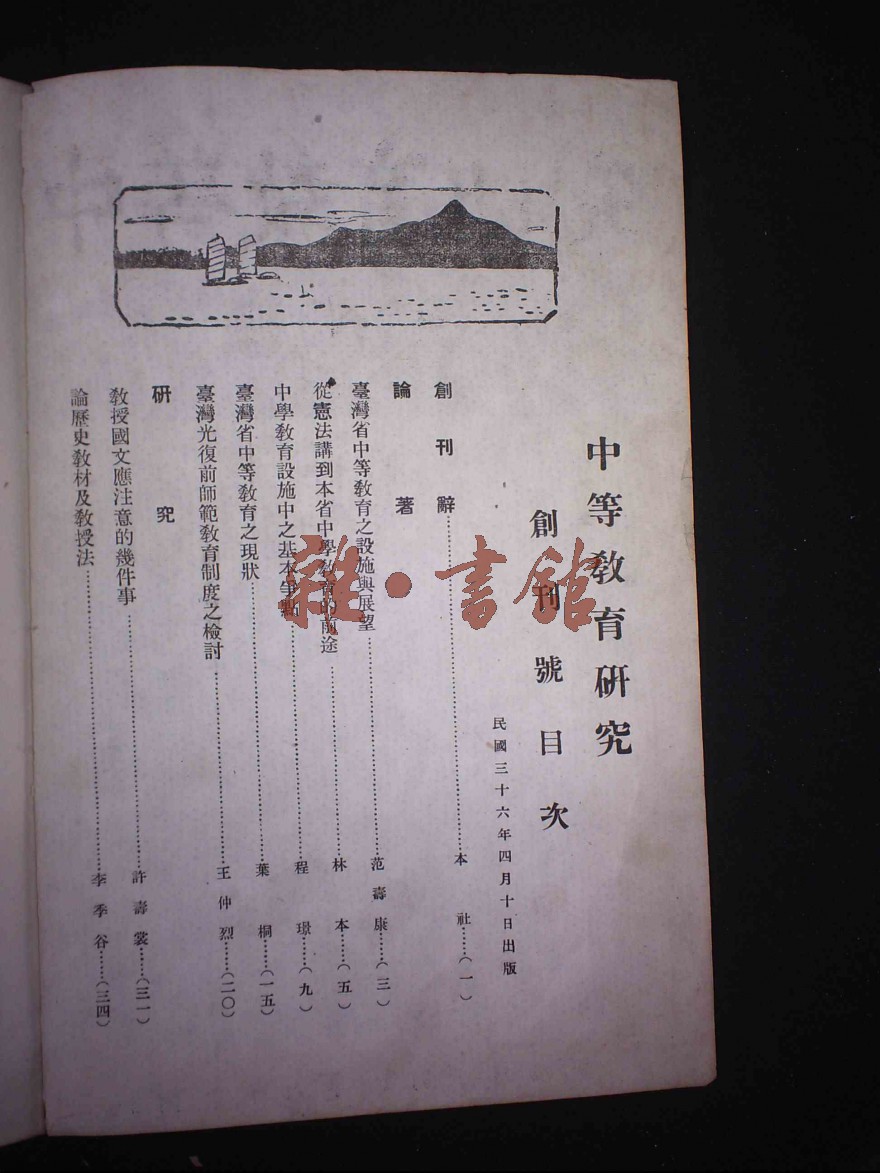 中等教育研究
創刊號目次
民國三十六年四月十日出版
創刊辭……本社……(一)
論著
臺灣省中等教育之設施與展望……范壽康……(三)
從憲法講到本省中學教育的前途……林本……(五)
中學教育設施中之基本爭點……程璟……(九)
臺灣省中等教育之現狀……葉桐……(一五)
臺灣光復前師範教育制度之檢討……王仲烈……(二〇)
研究
教授國文應注意的幾件事……許壽裳……(三一)
論歷史教材及教授法……李季谷……(三四)
雜·書館